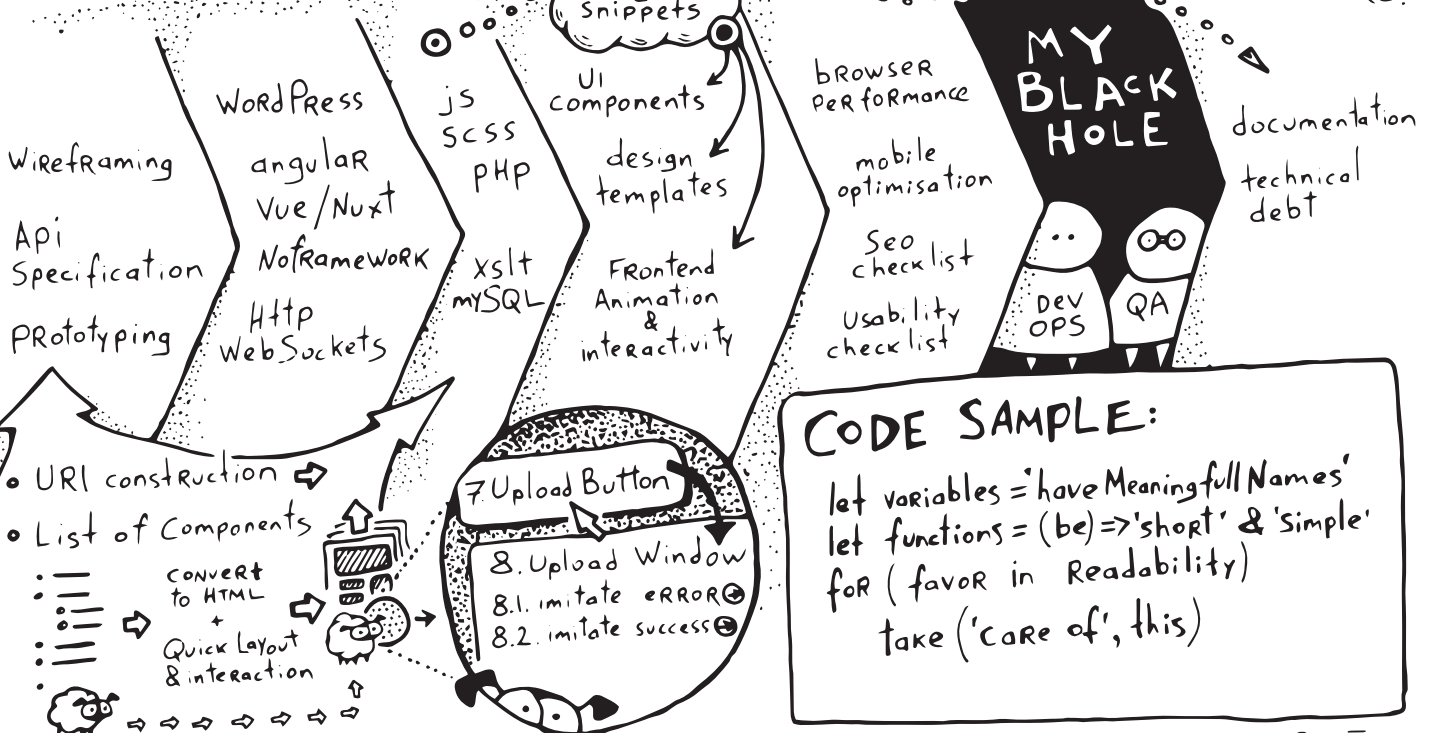 Snippets
Wireframing
Api
Specification
Prototyping
WordPress
angular
Vue/Nuxt
Noframework
Http
WebSockets
js
scss
PHP
xslt
mySQL
UI
components
design
templates
Frontend
Animation
&
interactivity
browser
performance
mobile
optimisation
Seo
checklist
Usability
checklist
MY
BLACK
HOLE
Dev
OPS
QA
documentation
technical
debt
URI construction
List of Components
convert
to HTML
+
Quick Layout
& interaction
7 Upload Button
8. Upload Window
8.1. imitate error
8.2. imitate success
CODE SAMPLE:
let variables = 'have Meaningfull Names'
let functions = (be) => 'short' & 'simple'
for ( favor in Readability)
take ('care of', this)